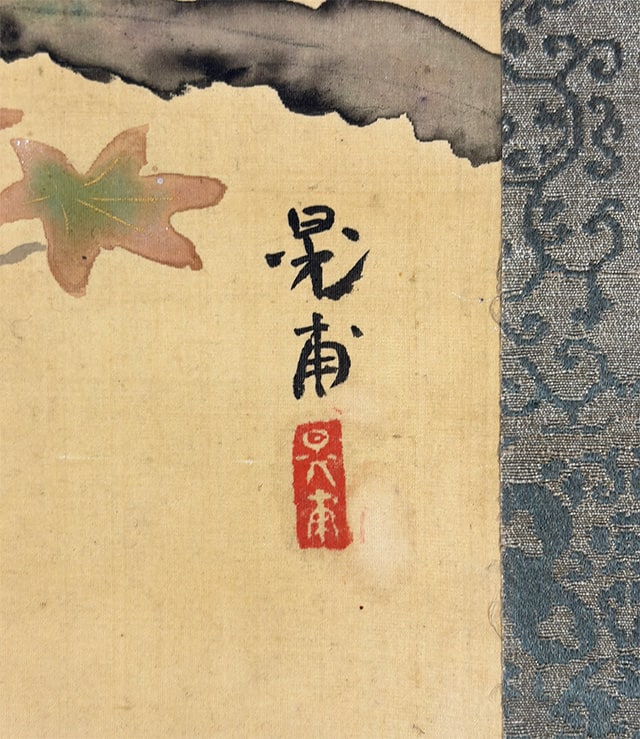 晃甫
晃甫